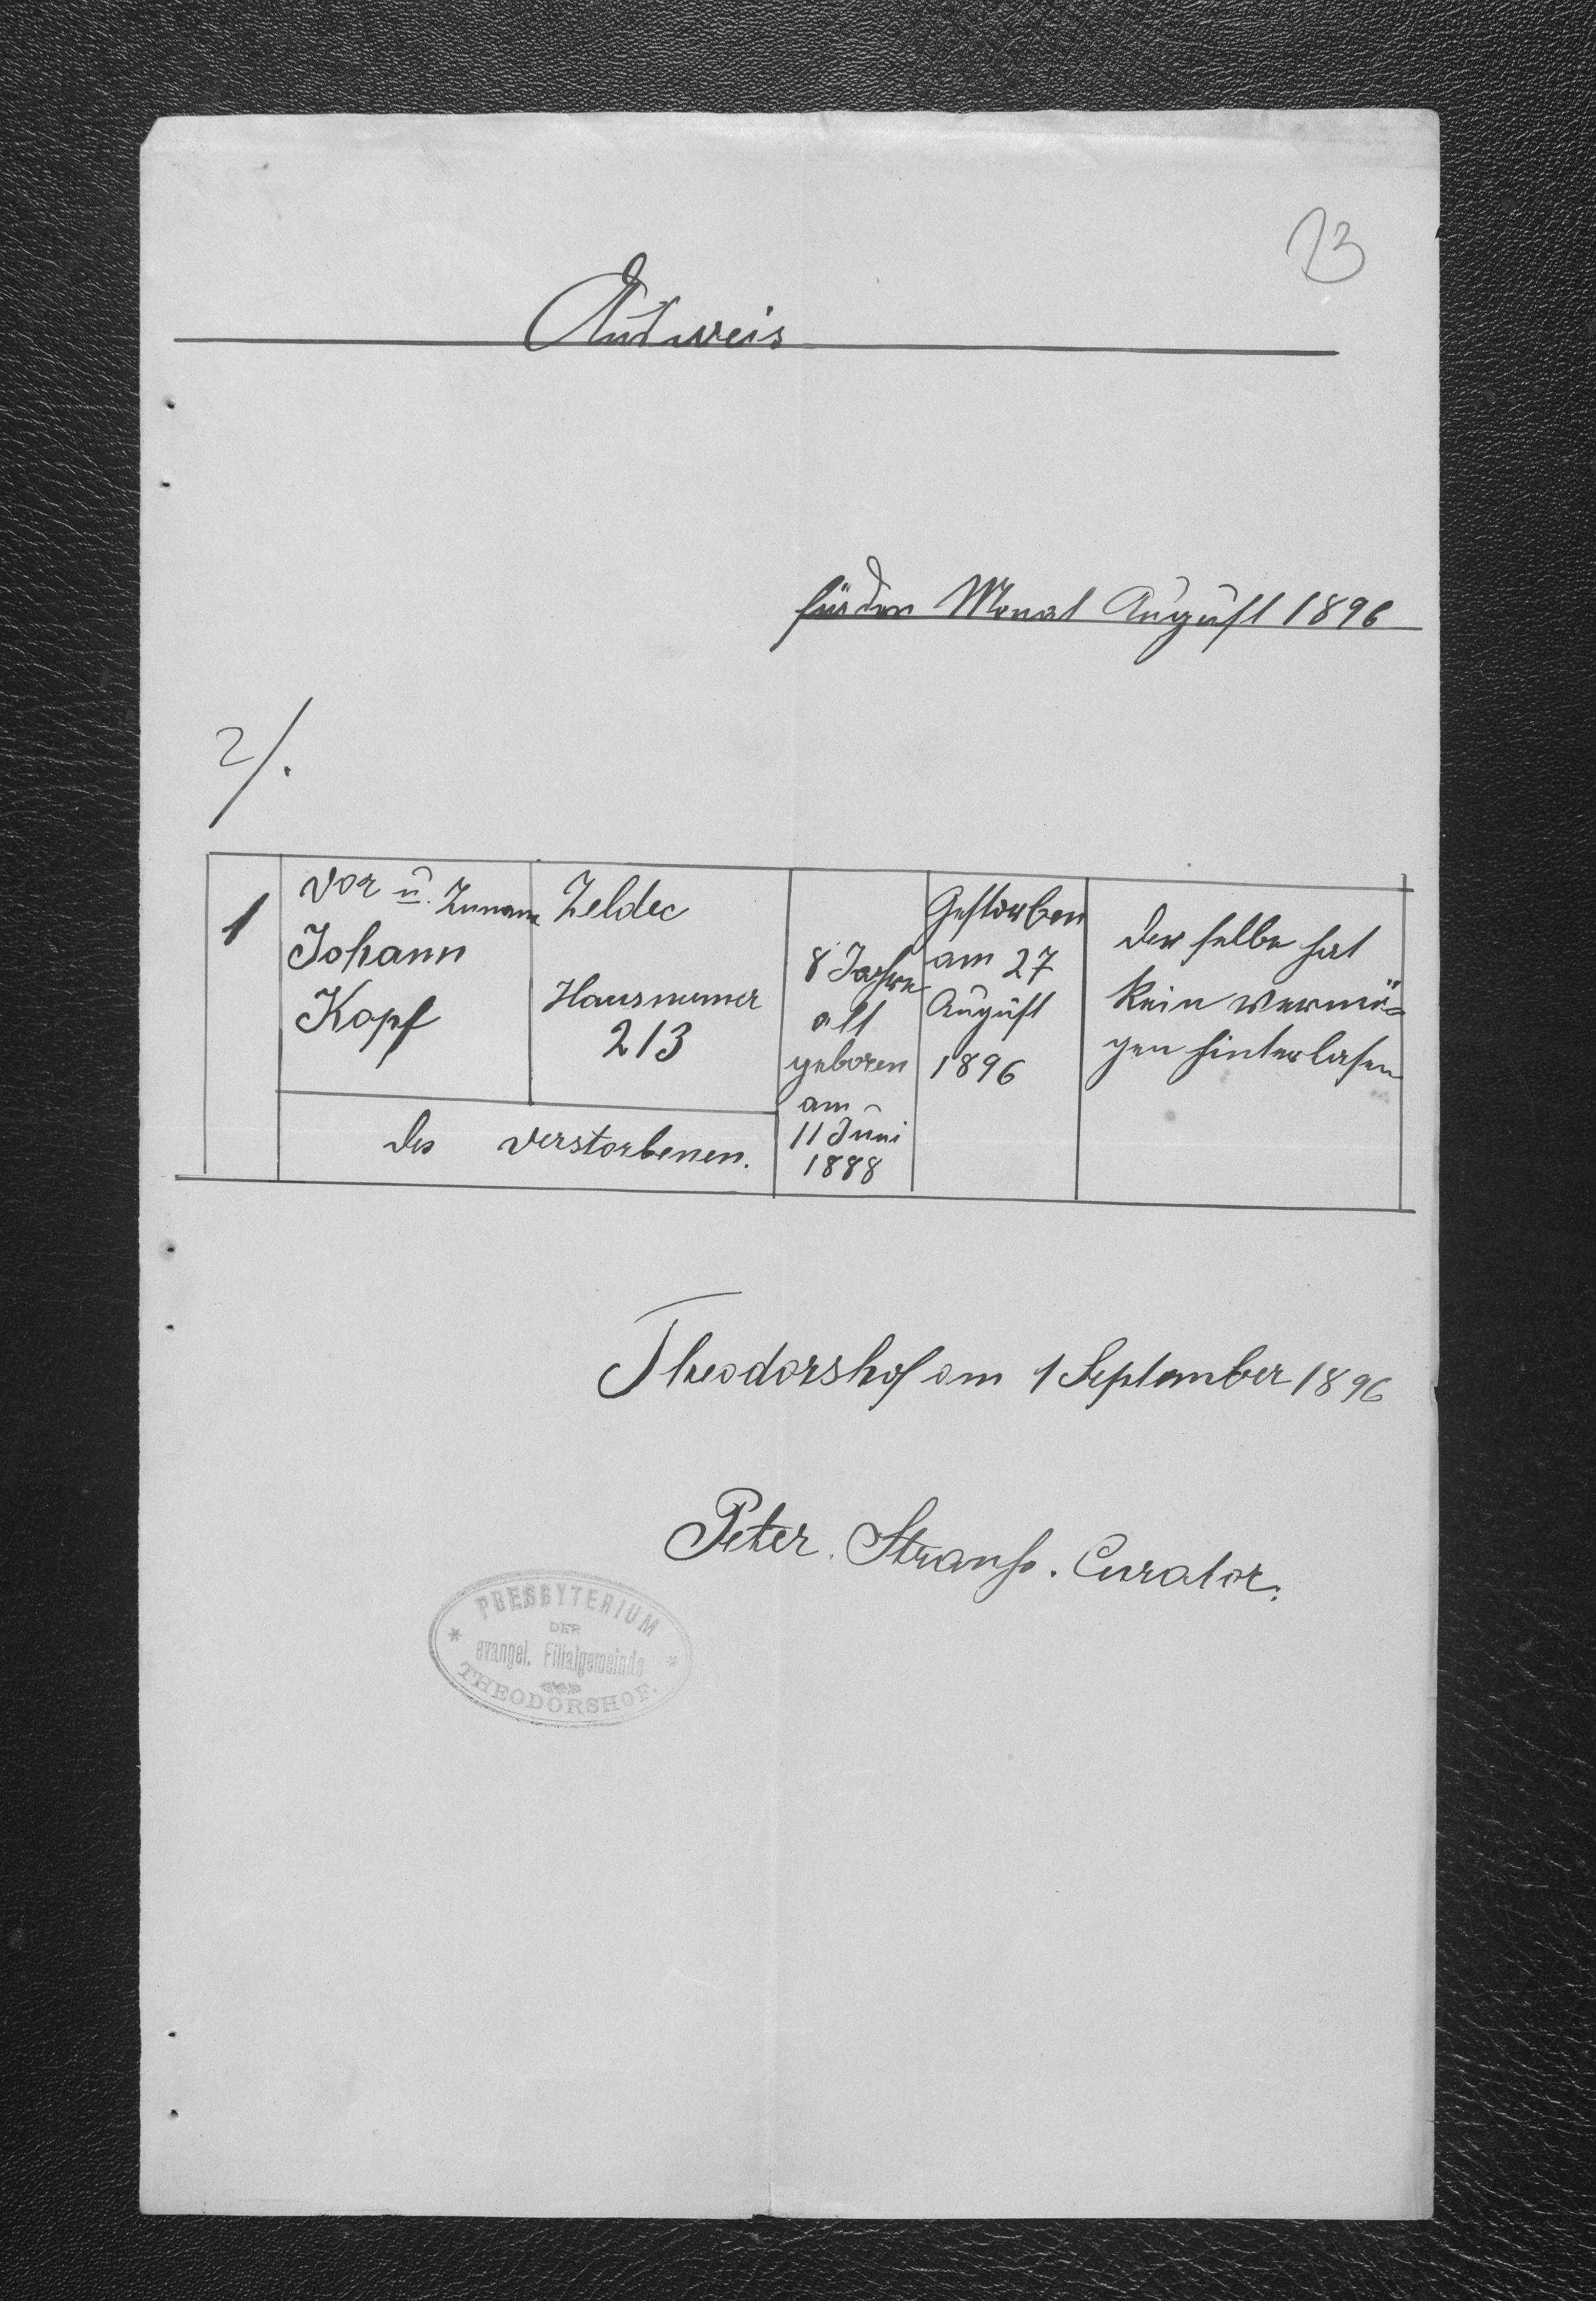 13
Ausweis
für den Monat August 1896
2/.
1
Vor u. Zuname
Johann
Kopf
Zeldec
Hausnumer
213
des verstorbenen.
8 Jahre
alt
geboren
am
11 Juni
1888
Gestorben
am 27
August
1896
der selbe hat
kein vermö-
gen hinterlasen
Theodorshof am 1 September 1896
Peter. Strauss. Curator.
PRESBYTERIUM
DER
evangel. Filialgemeinde
THEODORSHOF.